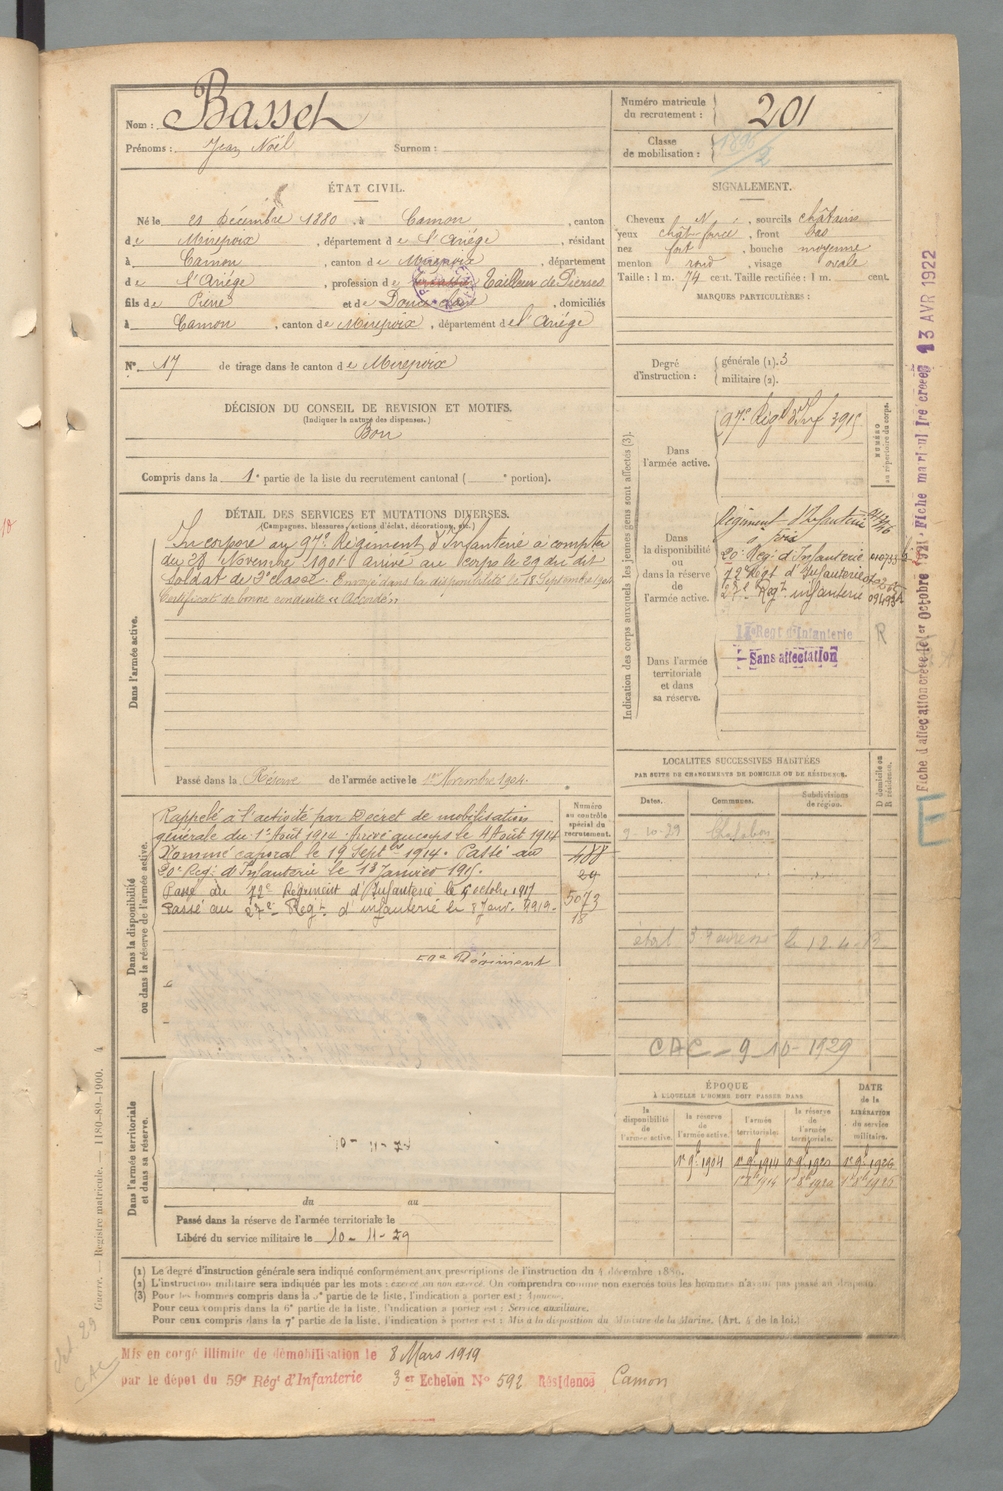 Nom : Basset
Prénoms : Jean Noël Surnom :
Numéro matricule du recrutement : 201
Classe de mobilisation :
ÉTAT CIVIL.
Né le 21 Décembre 1880, à Camon, canton
de Mirepoix, département de l'Ariége, résidant
à Camon, canton de Mirepoix, département
de l'Ariége, profession de Tailleur de Pierres
fils de Pierre et de , domiciliés
à Camon, canton de Mirepoix, département de l'Ariége
N° 17 de tirage dans le canton de Mirepoix
DÉCISION DU CONSEIL DE REVISION ET MOTIFS.
(Indiquer la nature des dispenses.)
Bon
Compris dans la 1e partie de la liste du recrutement cantonal ( e portion).
SIGNALEMENT.
Cheveux N, sourcils châtains
yeux chât foncé, front bas
nez fort, bouche moyenne
menton rond, visage ovale
Taille : 1 m. 74 cent. Taille rectifiée : 1 m. cent.
MARQUES PARTICULIÈRES :
Degré d'instruction : générale (1). 3
militaire (2).
DÉTAIL DES SERVICES ET MUTATIONS DIVERSES.
(Campagnes, blessures, actions d'éclat, décorations, etc.)
Dans l'armée active.
Incorporé au 97e Régiment d'Infanterie à compter
du 28 Novembre 1901 arrivé au Corps le 29 du dit
Soldat de 2e classe. Envoyé dans la disponibilité le 18 Septembre 1904
Certificat de bonne conduite "Accordé"
Passé dans la Réserve de l'armée active le 1er Novembre 1904.
Indication des corps auxquels les jeunes gens sont affectés (3).
NUMÉRO au répertoire du corps.
Dans l'armée active.
97e Régt d'Inf 3915
Dans la disponibilité ou dans la réserve de l'armée active.
Régiment d'Infanterie
à Foix
20e Régt d'Infanterie
72e Régt d'Infanterie
27e Régt infanterie
Dans l'armée territoriale et dans sa réserve.
Régt d'Infanterie
Sans affectation
R
Fiche matricule 13 AVR 1922
Dans la disponibilité ou dans la réserve de l'armée active.
Numéro au contrôle spécial du recrutement.
Rappelé à l'activité par Décret de mobilisation
générale du 1er Août 1914. Arrivé au corps le 4 Août 1914
Nommé caporal le 19 Septbre 1914. Passé au
20e Reg. d'Infanterie le 13 Janvier 1915.
Passé au 72e Régiment d'Infanterie le 6 octobre 1917
Passé au 27e Regt d'infanterie le 8 janv. 1919.
488
5073
59e Régiment
LOCALITÉS SUCCESSIVES HABITÉES
PAR SUITE DE CHANGEMENTS DE DOMICILE OU DE RÉSIDENCE.
Dates. Communes. Subdivisions de région. D domicile ou R résidence.
9 10-29 Chalabre
CAC - 9-10-1929
Dans l'armée territoriale et dans sa réserve.
10-11-29
du au
Passé dans la réserve de l'armée territoriale le
Libéré du service militaire le 10-11-29
ÉPOQUE
À LAQUELLE L'HOMME DOIT PASSER DANS
DATE de la LIBÉRATION du service militaire.
la disponibilité de l'armée active. la réserve de l'armée active. l'armée territoriale. la réserve de l'armée territoriale.
1er 9bre 1904 1er 9bre 1914 1er 9bre 1920 1er 9bre 1926
(1) Le degré d'instruction générale sera indiqué conformément aux prescriptions de l'instruction du 4 décembre
(2) L'instruction militaire sera indiquée par les mots : exercé ou non exercé. On comprendra comme non exercés tous les hommes n'ayant pas passé au drapeau.
(3) Pour les hommes compris dans la partie de la liste, l'indication à porter est : Ajourné.
Pour ceux compris dans la 6e partie de la liste, l'indication à porter est : Service auxiliaire.
Pour ceux compris dans la 7e partie de la liste, l'indication à porter est : Mis à la disposition du Ministre de la Marine. (Art. 4 de la loi.)
Guerre. — Registre matricule. — 1180-89-1900. 4
Mis en congé illimité de démobilisation le 8 Mars 1919
par le dépot du 59e Régt d'Infanterie 3er Echelon No 592 Résidence Camon
CAC